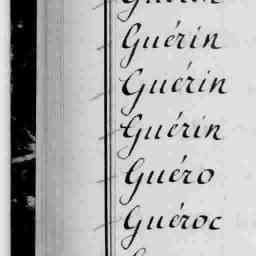 Guérin
Guérin
Guérin
Guéro
Guéroc